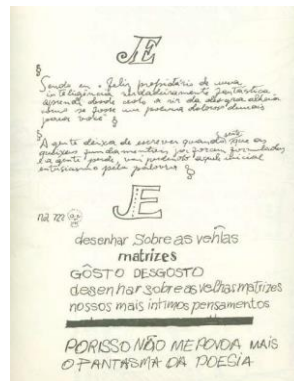 JE
§
Sendo eu o feliz proprietário de uma
inteligência verdadeiramente fantástica
aprendi desde cedo a rir da desgraça alheia
como se fosse um poema doloroso demais
para
§
A gente deixa de escrever quando sente que as
fundamentais já foram formuladas
e a gente perde, aquele inicial
entusiasmo pela palavra §
JE
na
desenhar sobre as velhas
matrizes
GÔSTO DESGOSTO
desenhar sobre as velhas matrizes
nossos mais íntimos pensamentos
PORISSO NÃO ME POVOA MAIS
O FANTASMA DA POESIA